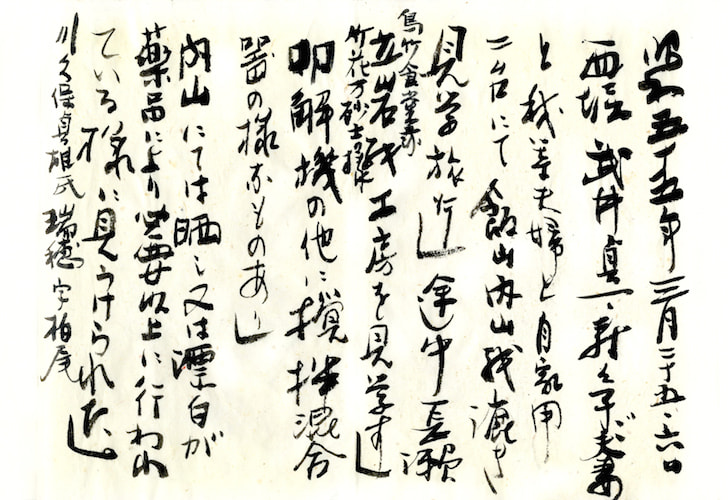 昭和五十五年三月二十五、六日
西堀 武井貞一、夫妻
と我等夫婦と自家用
二台にて飯山内山紙漉き
見学旅行し途中長瀬
立岩紙工房を見学す
叩解機の他に撹拌混合
器の様なものあり
内山にては晒し又は漂白が
薬品により必要以上に行われ
ている様に見うけられた
川久保貞雄氏 瑞穂字柏尾